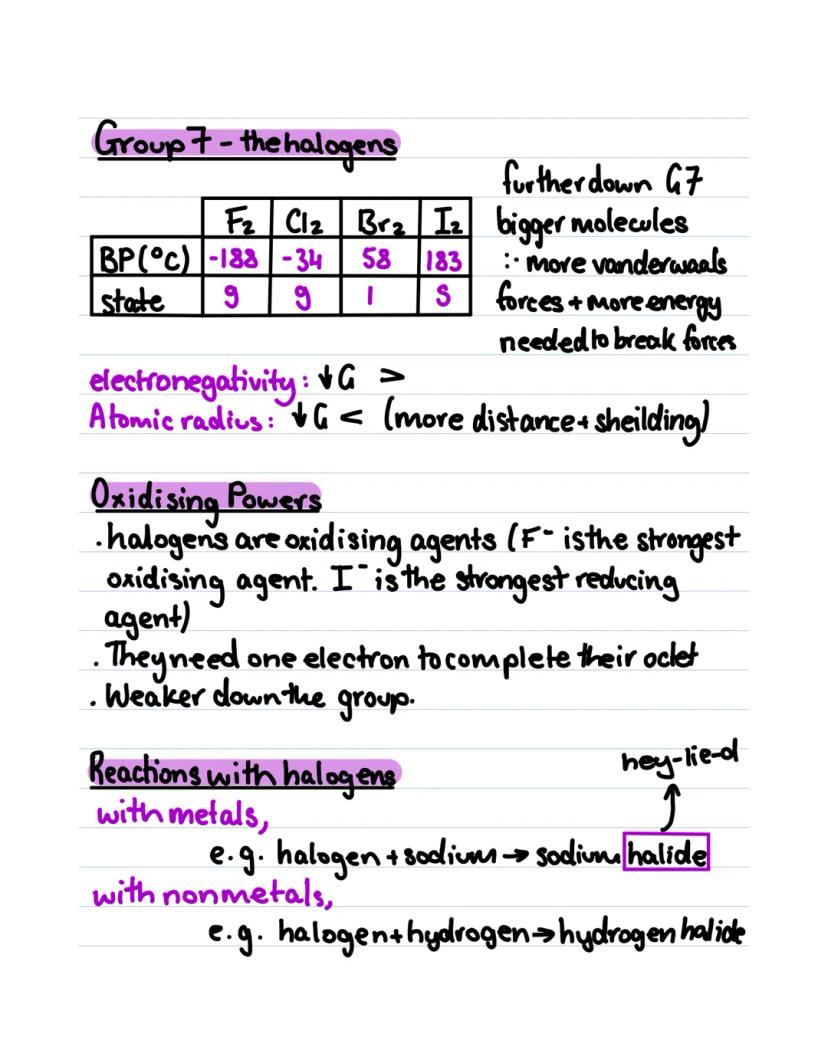 Group 7 - the halogens
further down G7
F₂ Cl₂ Br₂ I₂
bigger molecules
BP(°C) -188 -34 58 183
∴ more vanderwaals
state g g l s
forces + more energy
needed to break forces
electronegativity: ↓G >
Atomic radius: ↓G < (more distance + sheilding)
Oxidising Powers
. halogens are oxidising agents (F⁻ is the strongest
oxidising agent. I⁻ is the strongest reducing
agent)
. They need one electron to complete their octet
. Weaker down the group.
hey-lie-d
Reactions with halogens
with metals,
e.g. halogen + sodium → sodium halide
with nonmetals,
e.g. halogen + hydrogen → hydrogen halide